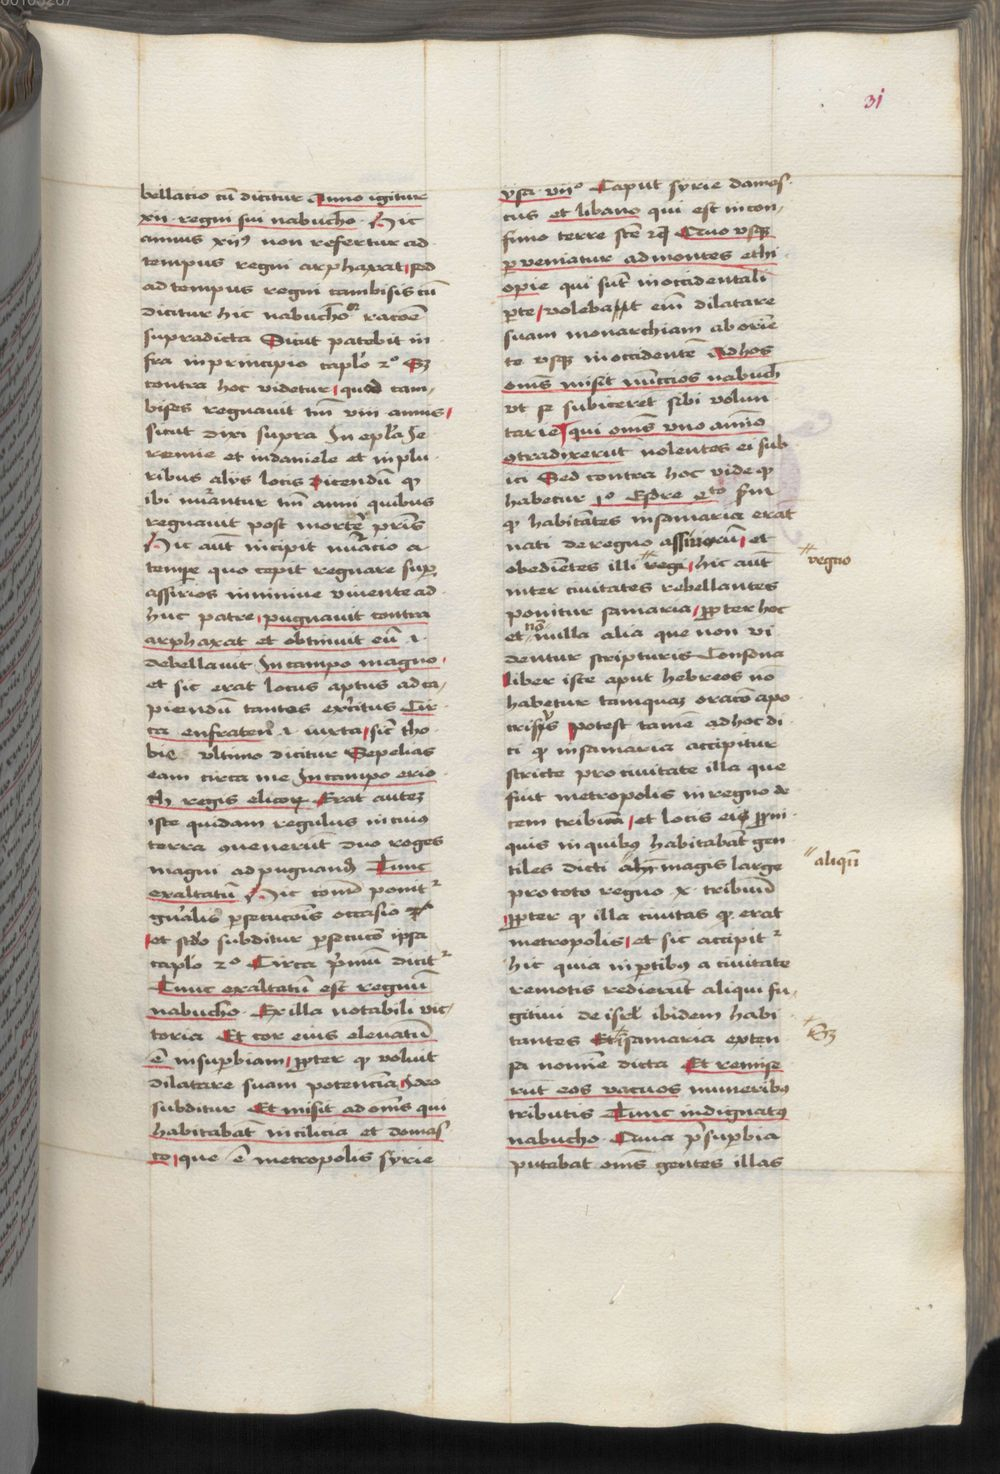 31
bellacio cū dicitur Anno igitur
xii regni sui nabucho. Hic
annus xiiꝰ non refertur ad
tempus regni arphaxat sed
ad tempus regni cambisis cū
dicitur hic nabuchoᵒʳ racōe
supradicta Sicut patebit in
fra in principio caplo 2º Sꝫ
contra hoc videtur quod cam
bises regnauit tm̄ viii annis
sicut dixi supra In epl'a Je
remie et in daniele et in plu
ribus alijs locis Dicendū qꝫ
ibi nūrantur tm̄ anni quibus
regnauit post mortē pr̄is
Hic aūt incipit nūracio a
tempore quo cepit regnare sup
assirios in niniue viuente ad
huc patre pugnauit contra
arphaxat et obtinuit eū .i.
debellauit In campo magno
et sic erat locus aptus ad ca
piendū tantos exercitus Cir
ca eufraten .i. iuxta sic tho
bie vltimo dicitur Sepelias
eam circa me In campo erio
ch regis elicoꝝ Erat auteꝫ
iste quidam regulus in cuiꝰ
terra ꝯuenerūt duo reges
magni ad pugnand Tunc
exaltatū Hic ponit
gn̄alis ꝑsecucōis occasio
et scd̄o subditur ꝑsecucō ipsa
caplo 2º Circa p̄mū dicit
Tunc exaltatū est regnū
nabucho. Ex illa notabili vic
toria Et cor eius eleuatū
ē in supbiam ꝓpter qꝫ voluit
dilatare suam potenciā Ideo
subditur Et misit ad om̄s qui
habitabāt in cilicia et damas
co que ē metropolis syrie
ysa. vii.º Caput syrie damas
cus et libano qui est in con
finio terre Quo vsqꝫ
ꝑueniatur ad montes ethi
opie qui sūt in occidentali
ꝑte volebat eī dilatare
suam monarchiam ab orien
te vsqꝫ in occidentē Ad hos
om̄s misit nūccios nabuch
vt se subiceret sibi volun
tarie qui om̄s vno animo
ꝯtradixerūt nolentes ei sub
ici Sed contra hoc vide qꝫ
habetur 1º Esdre 4ᵗᵒ
qꝫ habitātes in samaria erāt
nati de regno assirioꝝ et
obediētes illi regi hic aūt
regno
inter ciuitates rebellantes
ponitur samaria ꝓpter hoc
et nō nulla alia que non vi
dentur scripturis Consona
liber iste aput hebreos nō
habetur tamquaꝫ apo
crifus Potest tamē ad hoc di
ci qꝫ in samaria accipitur
stricte pro ciuitate illa que
fuit metropolis in regno de
cem tribuū et locis
quis in quibꝰ habitabāt gen
tiles dicti magis large
aliqn̄
pro toto regno x tribuum
ꝓpter qꝫ illa ciuitas qꝫ erat
metropolis et sic accipit
hic quia in ꝑtibꝰ a ciuitate
remotis redierūt aliqui fu
gitiui de isrl' ibidem habi
tantes Et samaria exten
sa nomīe dicta Et remise
rūt eos vacuos muneribꝰ
tributis Tunc indignatꝰ
nabucho Quia p̄ supbia
putabat om̄s gentes illas